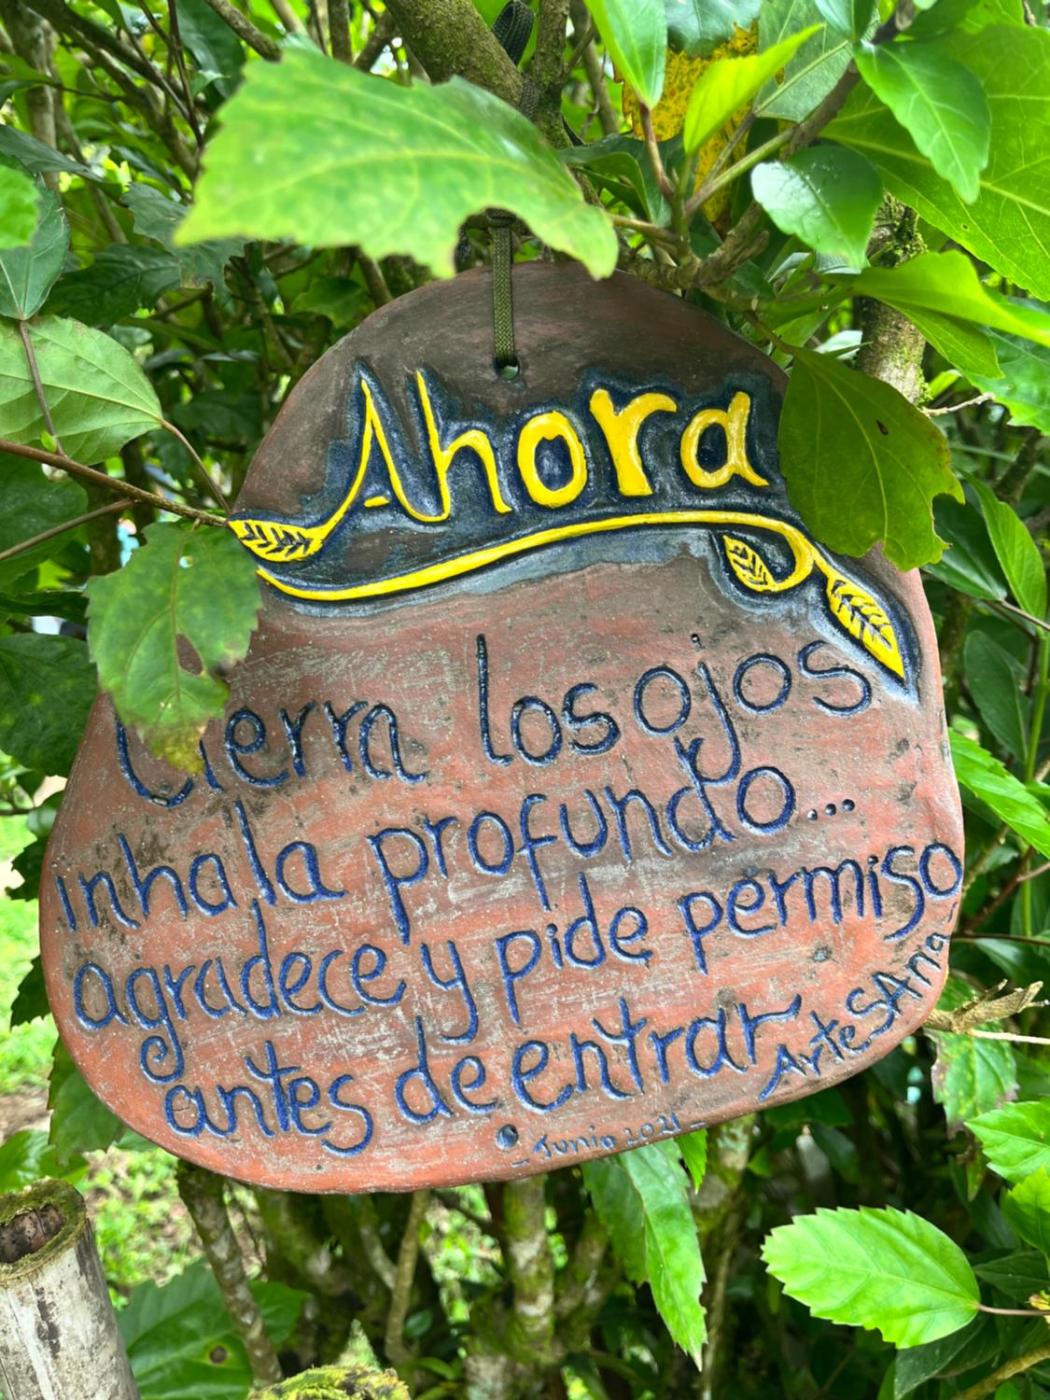 Ahora
Cierra los ojos
inhala profundo...
agradece y pide permiso
antes de entrar
ArteSAna
- Junio 2021 -